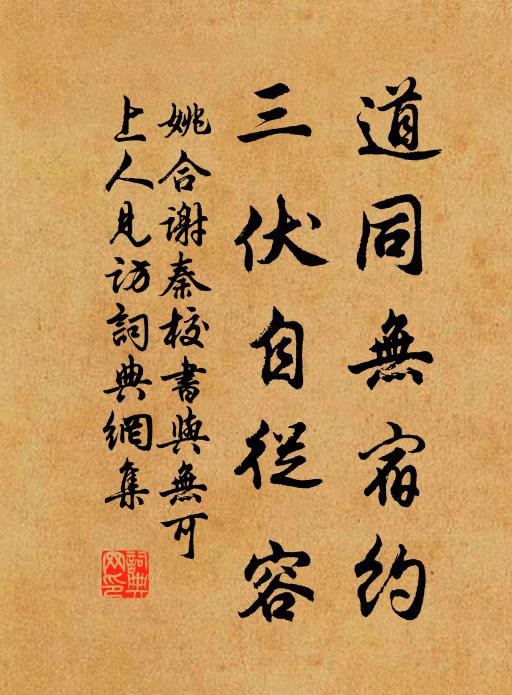 道同無宿約
三伏自從容
姚合謝秦校書與無可
上人見訪詞典網集
詞典网印